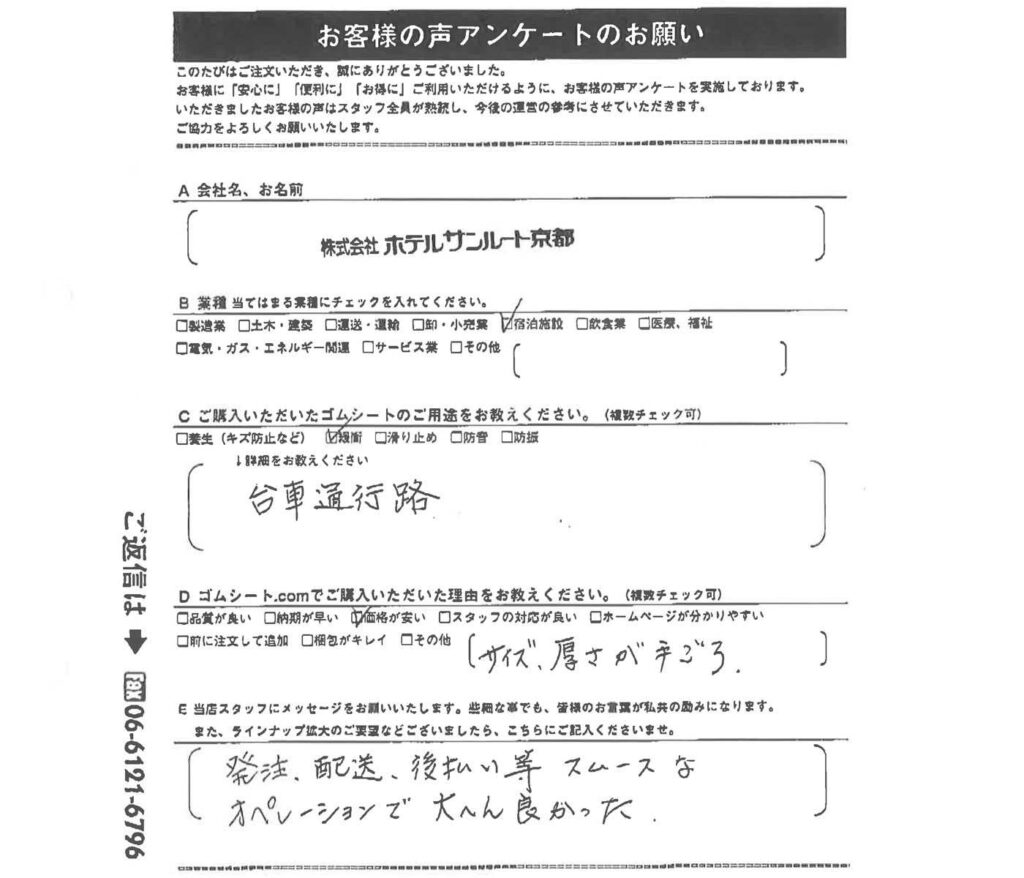 お客様の声アンケートのお願い
このたびはご注文いただき、誠にありがとうございました。
お客様に「安心に」「便利に」「お得に」ご利用いただけるように、お客様の声アンケートを実施しております。
いただきましたお客様の声はスタッフ全員が熟読し、今後の運営の参考にさせていただきます。
ご協力をよろしくお願いいたします。
A 会社名、お名前
株式会社 ホテルサンルート京都
B 業種 当てはまる業種にチェックを入れてください。
□製造業 □土木・建築 □運送・運輸 □卸・小売業 ☑宿泊施設 □飲食業 □医療、福祉
□電気・ガス・エネルギー関連 □サービス業 □その他
C ご購入いただいたゴムシートのご用途をお教えください。(複数チェック可)
□養生(キズ防止など) ☑緩衝 □滑り止め □防音 □防振
↓詳細をお教えください
台車通行路
D ゴムシート.comでご購入いただいた理由をお教えください。(複数チェック可)
□品質が良い □納期が早い ☑価格が安い □スタッフの対応が良い □ホームページが分かりやすい
□前に注文して追加 □梱包がキレイ □その他
サイズ、厚さが手ごろ.
E 当店スタッフにメッセージをお願いいたします。些細な事でも、皆様のお言葉が私共の励みになります。
また、ラインナップ拡大のご要望などございましたら、こちらにご記入くださいませ。
発注、配送、後払い等 スムースな
オペレーションで 大へん良かった.
ご返信は ➡ fax 06-6121-6796